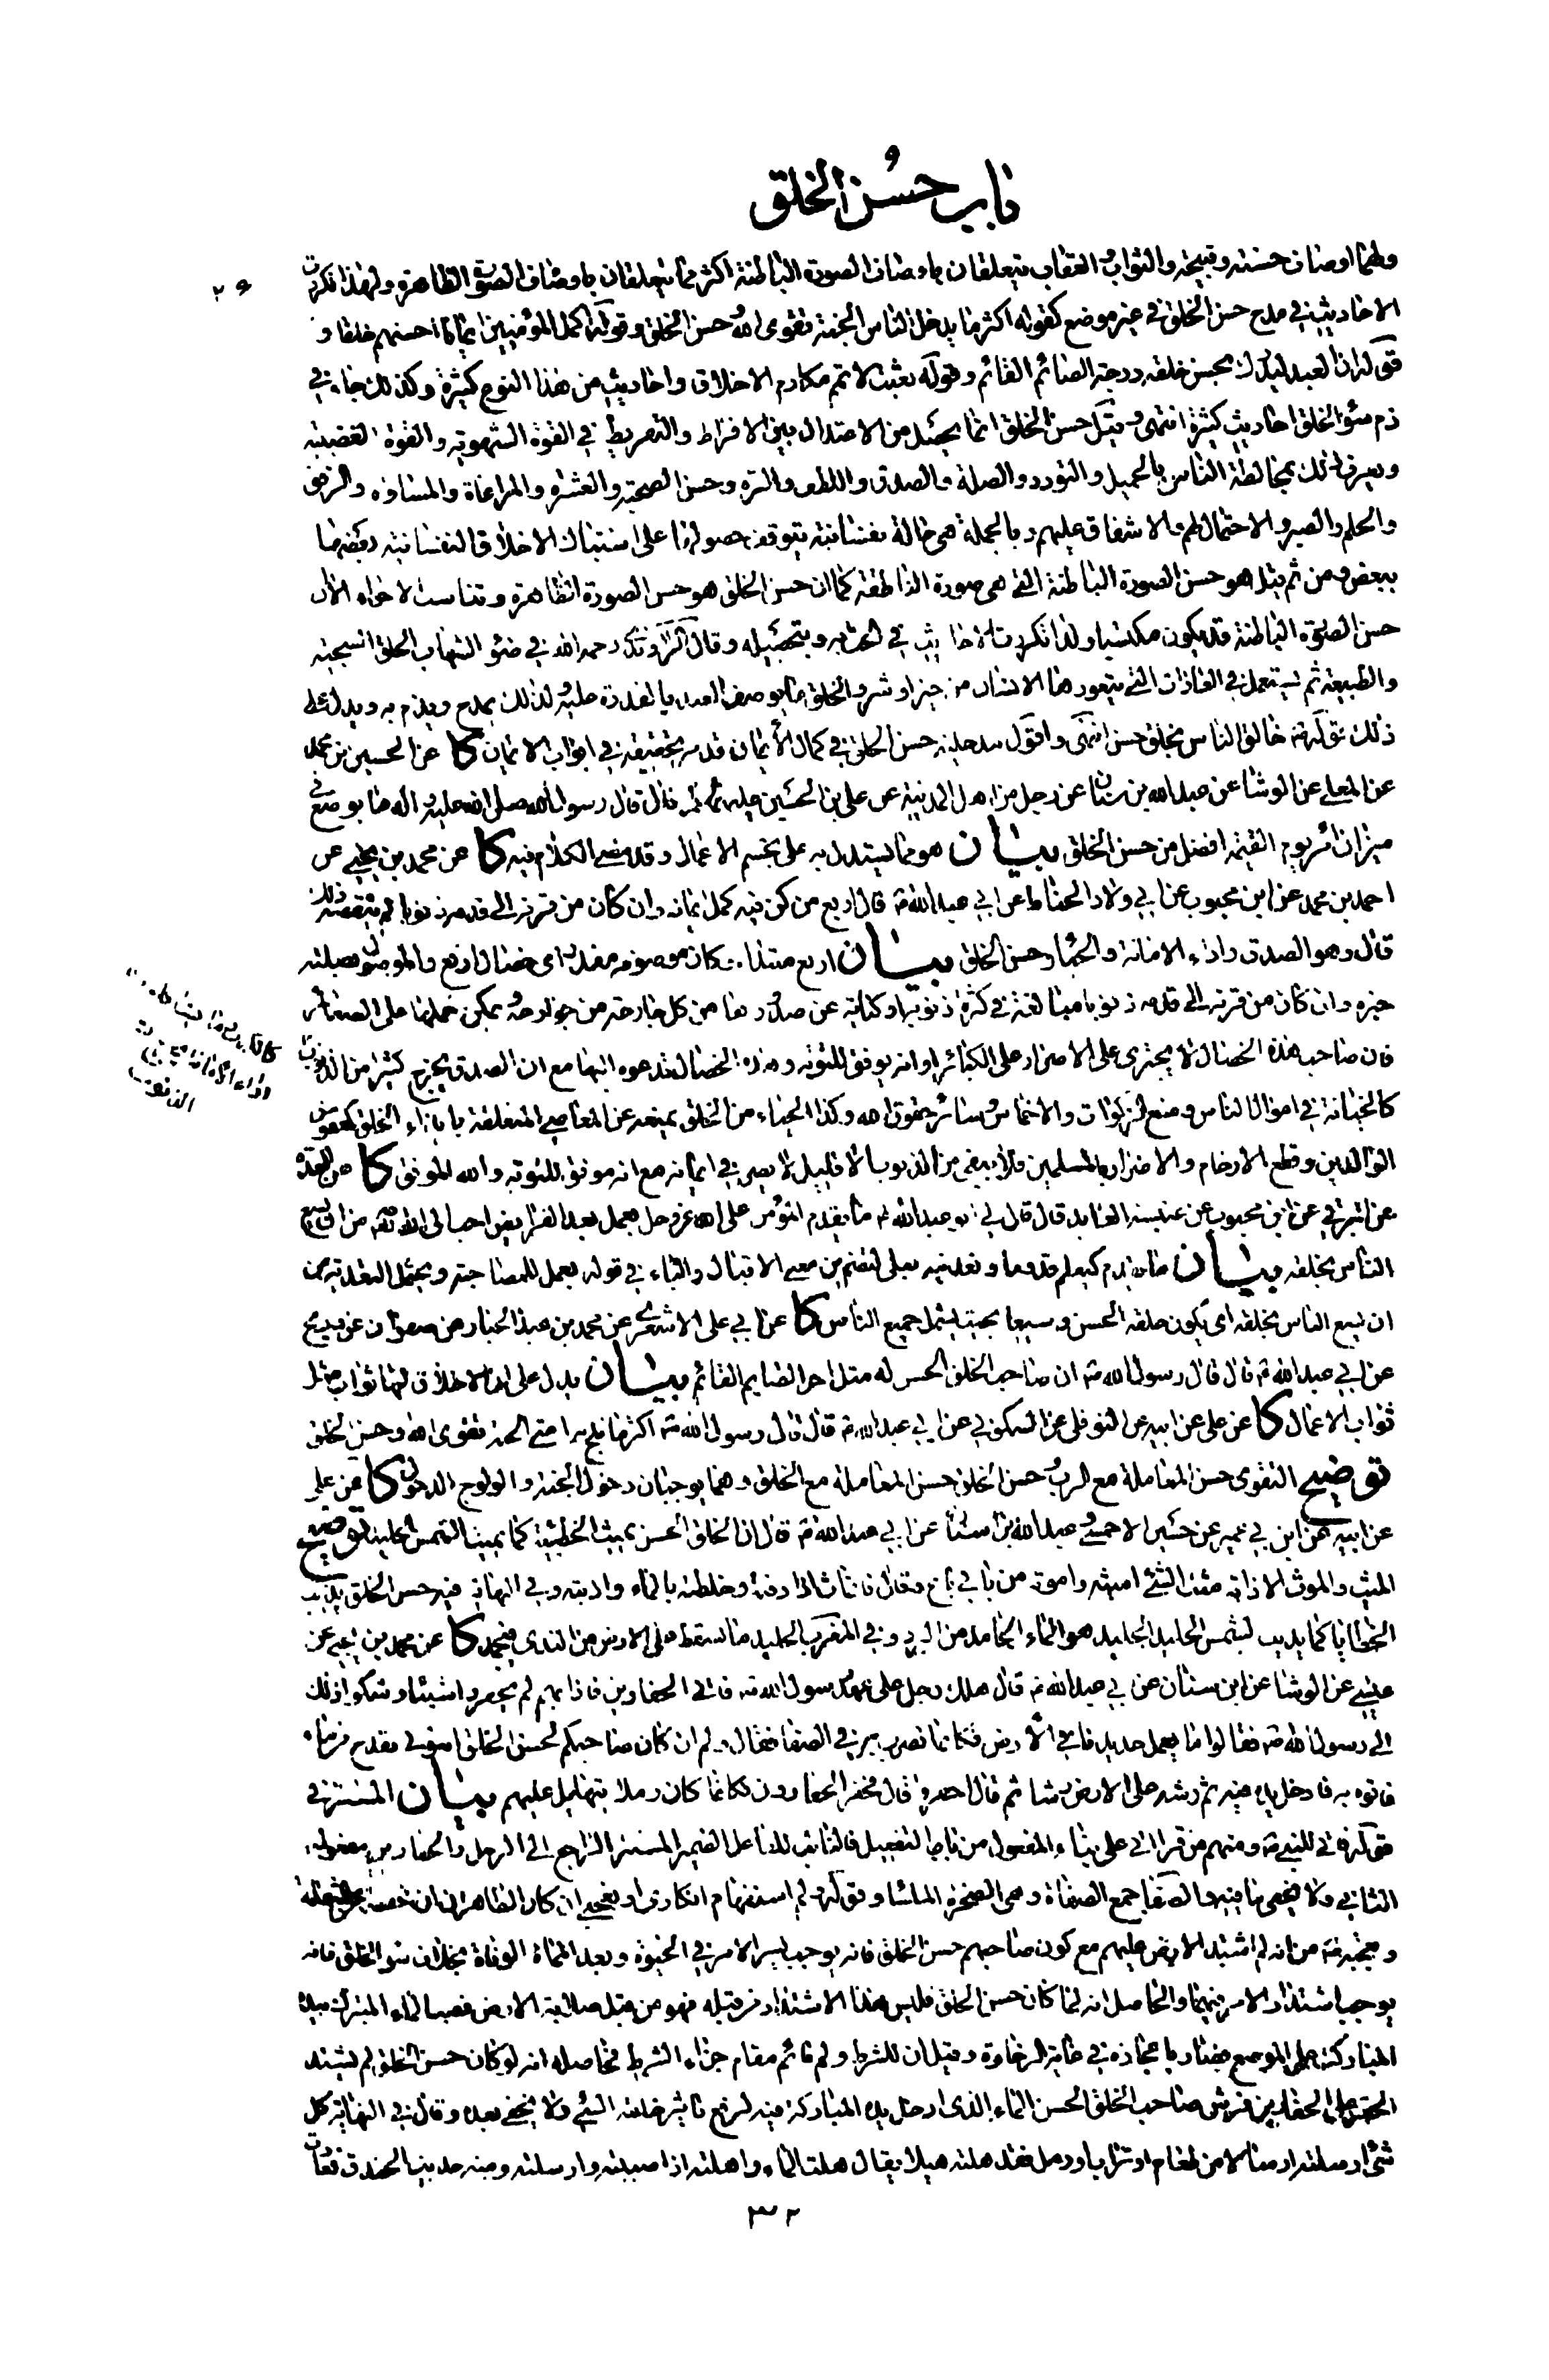 باب حسن الخلق
ولهما اوصاف حسنة وقبيحة والثواب والعقاب يتعلقان باوصاف الصورة الباطنة اكثر مما يتعلقان باوصاف الصورة الظاهرة ولهذا تكررت
٢٦
الاحاديث في مدح حسن الخلق في غير موضع كقوله اكثر ما يدخل الناس الجنة تقوى الله وحسن الخلق وقوله اكمل المؤمنين ايمانا احسنهم خلقا و
قوله ان العبد ليدرك بحسن خلقه درجة الصائم القائم وقوله بعثت لاتمم مكارم الاخلاق واحاديث من هذا النوع كثيرة وكذلك جاء في
ذم سوء الخلق احاديث كثيرة انتهى وقيل حسن الخلق انما يحصل من الاعتدال بين الافراط والتفريط في القوة الشهوية والقوة الغضبية
ويعرف ذلك بمخالطة الناس بالجميل والتودد والصلة والصدق واللطف والبر وحسن الصحبة والعشرة والمراعاة والمساواة والرفق
والحلم والصبر والاحتمال لهم والاشفاق عليهم وبالجملة هي حالة نفسانية يتوقف حصولها على اشتباك الاخلاق النفسانية بعضها
ببعض ومن ثم قيل هو حسن الصورة الباطنة التي هي صورة الناطقة كما ان حسن الخلق هو حسن الصورة الظاهرة وتناسب الاجزاء الا ان
حسن الصورة الباطنة قد يكون مكتسبا ولذا تكررت الاحاديث في الحث به وبتحصيله وقال الراوندي رحمه الله في ضوء الشهاب الخلق السجية
والطبيعة ثم يستعمل في العادات التي يتعودها الانسان من خير او شر والخلق ما يوصف العبد بالقدرة عليه ولذلك يمدح ويذم به ويدل على
ذلك قوله خالق الناس بخلق حسن انتهى واقول مدخلية حسن الخلق في كمال الايمان قد مر تحقيقه في ابواب الايمان كا عن الحسين بن محمد
عن المعلى عن الوشا عن عبد الله بن سنان عن رجل من اهل المدينة عن علي بن الحسين عليهما قال قال رسول الله صلى الله عليه واله ما يوضع في
ميزان امرئ يوم القيمة افضل من حسن الخلق بيان هو مما يستدل به على تجسم الاعمال وقد مضى الكلام فيه كا عن محمد بن يحيى عن
احمد بن محمد عن ابن محبوب عن ابي ولاد الحناط عن ابي عبد الله قال اربع من كن فيه كمل ايمانه وان كان من قرنه الى قدمه ذنوبا لم ينقصه ذلك
قال وهو الصدق واداء الامانة والحياء وحسن الخلق بيان اربع مبتدا وكان موصوفه مقدر اى خصال اربع والموصول بصلته
خبره وان كان من قرنه الى قدمه ذنوبا مبالغة في كثرة ذنوبه او كناية عن صدورها من كل جارحة من جوارحه يمكن حملها على الصغائر
فان صاحب هذه الخصال لا يجترى على الاصرار على الكبائر او انه يوفق للتوبة وهذه الخصال تدعوه اليها مع ان الصدق يخرج كثيرا من الذنوب
كالخيانة في اموال الناس ومنع الزكوات والاخماس وسائر حقوق الله وكذا الحياء من الخلق يمنعه عن المعاصى المتعلقة بايذاء الخلق كعقوق
الوالدين وقطع الارحام والاضرار بالمسلمين فلا يبقى من الذنوب الا قليل لا يضر في ايمانه مع انه موفق للتوبة والله الموفق كا عن العدة
عن البرقي عن ابن محبوب عن عنبسة العابد قال قال لي ابو عبد الله ما يقدم المؤمن على الله عز وجل بعمل بعد الفرائض احب الى الله من ان يسع
الناس بخلقه بيان ما يقدم كيعلم قدوما وتعديته بعلى لتضمين معنى الاقبال والباء في قوله بعمل للمصاحبة ويحتمل التعدية من
ان يسع الناس بخلقه اى يكون خلقه الحسن وسيعا بحيث يشمل جميع الناس كا عن ابي علي الاشعري عن محمد بن عبد الجبار عن صفوان عن ذريح
عن ابي عبد الله قال قال رسول الله ان صاحب الخلق الحسن له مثل اجر الصايم القائم بيان يدل على ان الاخلاق لها ثواب مثل
ثواب الاعمال كا عن علي عن ابيه عن النوفلي عن السكوني عن ابي عبد الله قال قال رسول الله اكثر ما تلج به امتي الجنة تقوى الله وحسن الخلق
توضيح التقوى حسن المعاملة مع الرب وحسن الخلق حسن المعاملة مع الخلق وهما يوجبان دخول الجنة والولوج الدخول كا عن علي
عن ابيه عن ابن ابي عمير عن حسين الاحمسي وعبد الله بن سنان عن ابي عبد الله قال ان الخلق الحسن يميث الخطيئة كما يميث الشمس الجليد توضيح
الميث والموث الاذابة مثت الشئ اميثه واموته من بابي باع وقال فانماث اذا دفته وخلطته بالماء واذبته وفي النهاية فيه حسن الخلق يذيب
الخطايا كما يذيب الشمس الجليد الجليد هو الماء الجامد من البرد وفي المغرب الجليد ما يسقط على الارض من الندى فيجمد كا عن محمد بن يحيى عن
عن الوشا عن ابن سنان عن ابي عبد الله قال هلك رجل على عهد رسول الله فاتى الحفارين فاذا بهم لم يحفروا شيئا وشكوا ذلك
الى رسول الله فقالوا ما يعمل حديدنا في الارض فكانما نضرب به في الصفا فقال ولم ان كان صاحبكم لحسن الخلق ايتوني بقدح من ماء
فاتوه به فادخل يده فيه ثم رشه على الارض رشا ثم قال احفروا قال فحفر الحفارون فكانما كان رملا يتهايل عليهم بيان المستتر في
قوله فاتى للنبي ومنهم من قرا اتى على بناء المفعول من باب التفعيل فالنائب للفاعل الضمير المستتر الراجع الى الرجل والحفارين مفعوله
الثاني ولا يخفى ما فيه والصفا جمع الصفاة وهي الصخرة الملساء وقوله ولم استفهام انكارى او تعجبى ان كان الظاهر ان ان مخففة
وتعجبه من انه لم اشتد الارض عليهم مع كون صاحبهم حسن الخلق فانه يوجب يسر الامر في الحيوة وبعد الوفاة بخلاف سوء الخلق فانه
يوجب اشتداد الامر فيهما والحاصل انه لما كان حسن الخلق فليس هذا الاشتداد من قبله فهو من قبل صلابة الارض فصب الماء المتبرك بيده
المباركة على الموضع فصار باعجازه في غاية الرخاوة وقيل ان للشرط ولم قائم مقام جزاء الشرط فحاصله انه لو كان حسن الخلق لم يشتد
الحفر على الحفارين فرش صاحب الخلق الحسن الماء الذى ادخل يده المباركة فيه لرفع تاثير خلقه السيئ ولا يخفى بعده وقال في النهاية كل
شئ ارسلته ارسالا من طعام او تراب او رمل فقد هلته هيلا يقال هلت الماء واهلته اذا صببته وارسلته ومنه حديث الخندق فعادت
٣٢